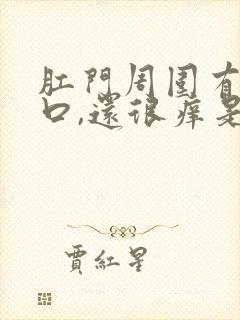 肛門周围有
口,還很癢是
賈紅星